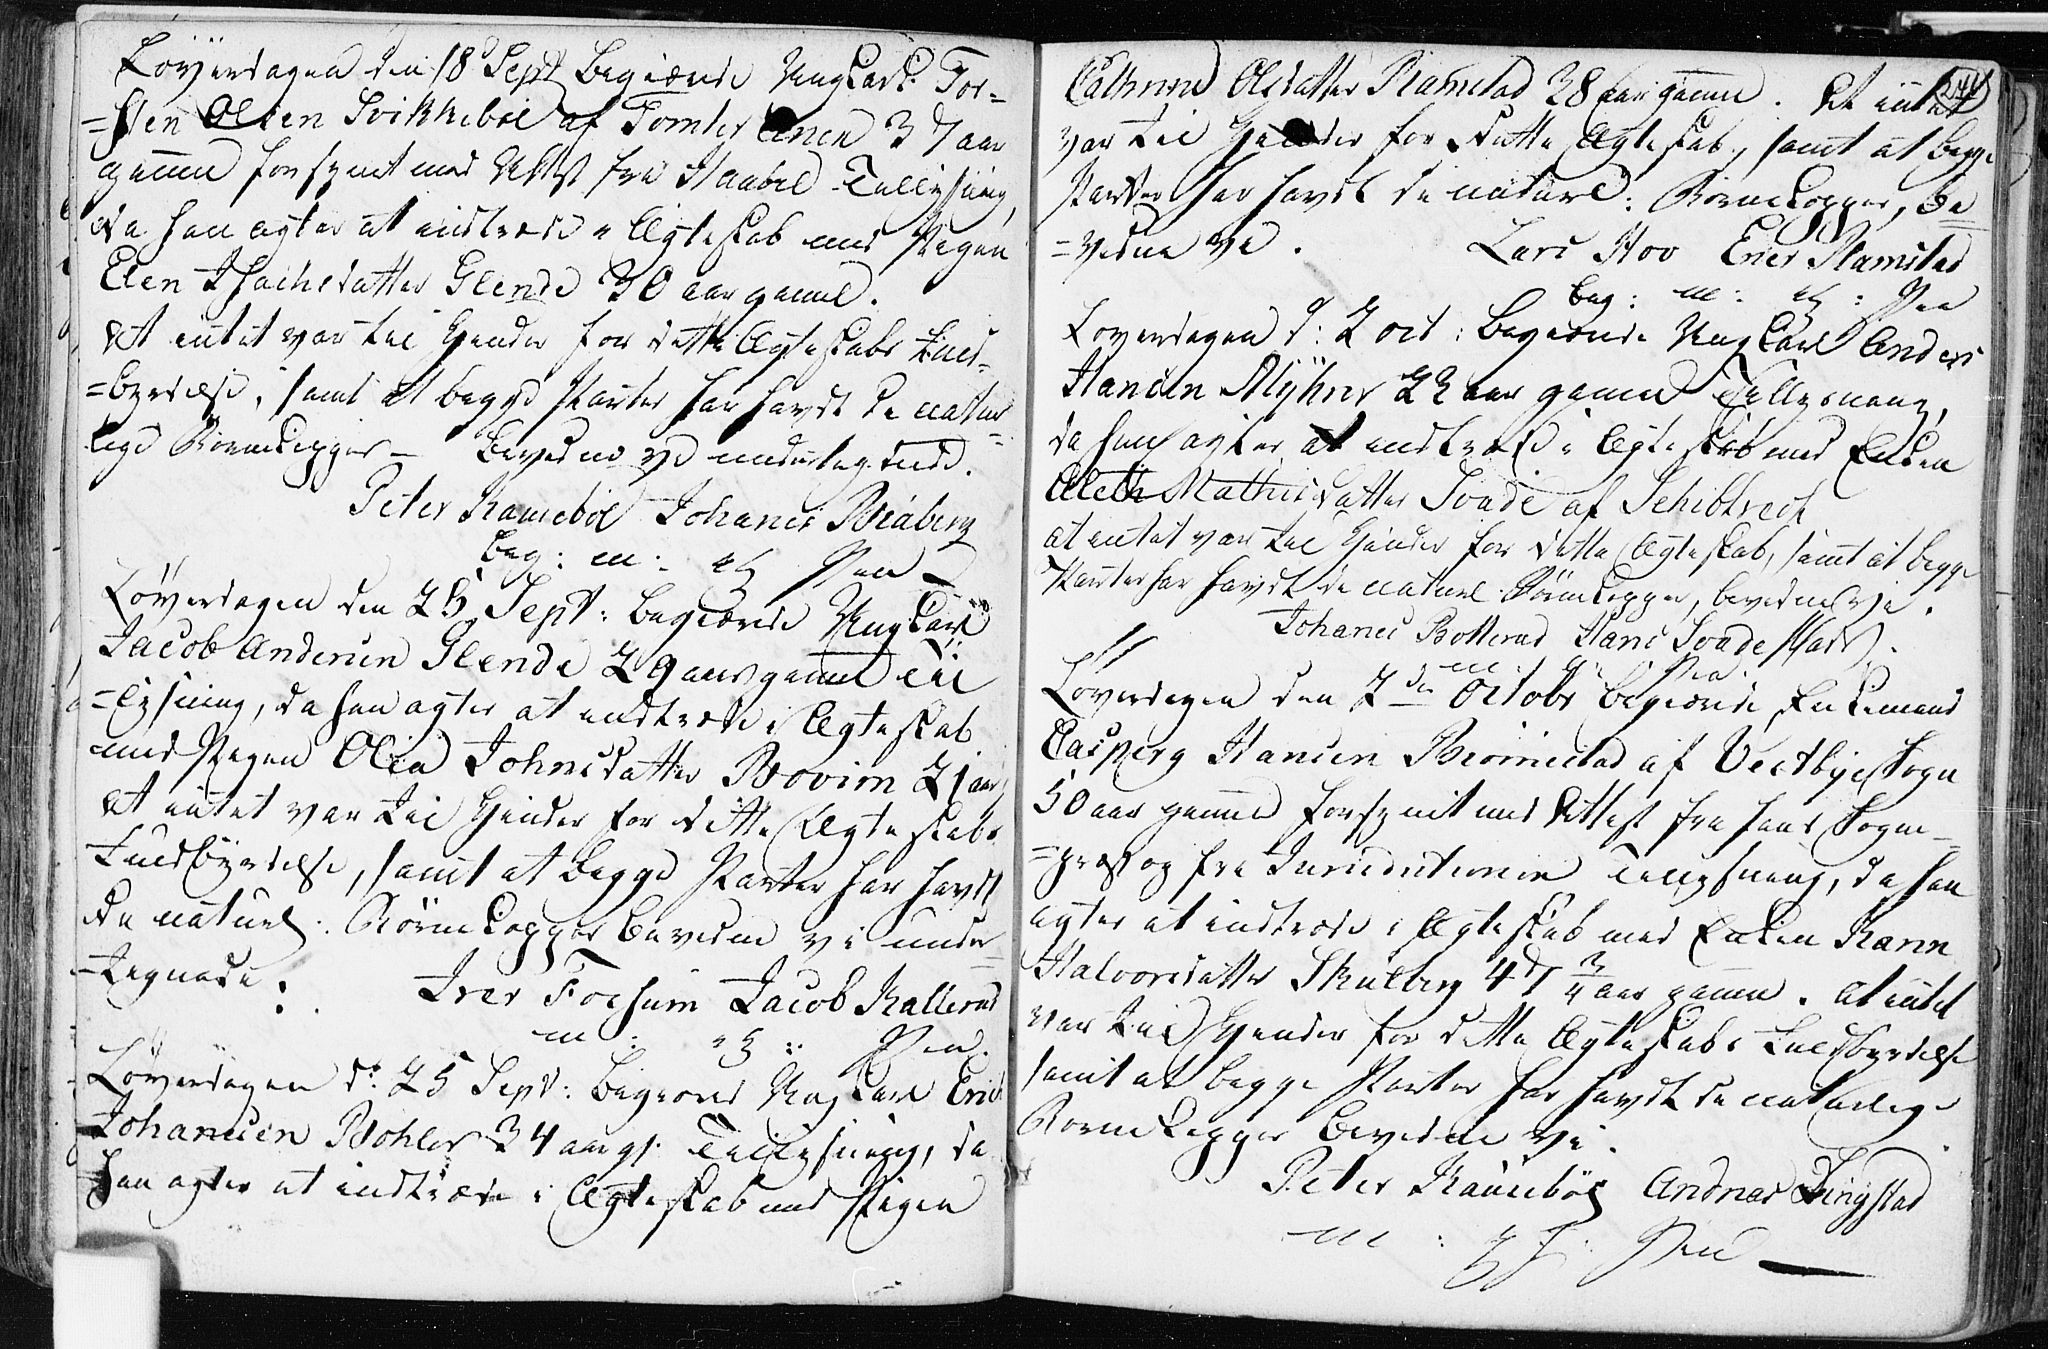 Løverdagen den 18 Sept begierede Ungkarl: Tor-
=sten Olsen Svikkebøl af Tomter Anex 37 aar
gamel forsynet med Attst fra Haabøl Tillysning,
da han agter at indtræde i Ægteskab med Pigen
Elen Isachsdatter Glende 30 aar gamel.
At intet var til Hinder for dette Ægteskabs Fuld-
=byrdelse, samt at begge Parter har havdt de natur-
lige Børnekopper – bevidne vi undertegnede.
Peter Kausebøl Johanes Biaberg
beg: m: ef Pen
Løverdagen den 25 Sept: begierede Ungkarl
Jacob Andersen Glende 29 aar gamel Til
=lysning, da han agter at indtræde i Ægteskab
med Pigen Olea Johnsdatter Bovim 21 aar,
at intet var til Hinder for dette Ægteskabs
Fuldbyrdelse, samt at begge Parter har havdt
de naturl: Børnekopper bevidne vi under-
=tegnede:
Iver Fosum Jacob Kallerud
m: Pen.
Løverdagen d: 25 Sept: begiered Ungkarl Erich
Johansen Bøhler 34 aar gl: Tillysning, da
han agter at indtræde i Ægteskab med Pigen
Cathrine Olsdatter Ramstad 28 aar gamel. At intet
var til Hinder for dette Ægteskab, samt at begge
Parter har havdt de naturl: Børnekopper, be
=vidne vi. Lars Hov Ener Ramstad
beg: m: Pen
Løverdagen d: 2 oct: begierede Ungkarl Anders
Hansen Myhrer 22 aar gamel Tillysning,
da han agter at indtræde i Ægteskab med Enken
Aleth Mathisdatter Svade af Schibtvedt
at intet var til Hinder for dette Ægteskab, samt at begge
Parter har havdt de naturl Børnekopper, bevidne vi.
Johanes Botterud Hans Svade
m: Pen
Løverdagen den 2den Octobr begierede Enkemand
Casperg Hansen Brønnestad af Vestbye Sogn
50 aar gamel forsynet med Attest fra hans Sogne-
=præst og fra Tillysning, da han
agter at indtræde i Ægteskab med Enken Karen
Halvorsdatter Skulberg 47 3/4 aar gamel. at intet
var til Hinder for dette Ægteskabs Fuldbyrdelse
samt at begge Parter har havdt de naturlige
Børnekopper bevidne vi.
Peter Kausebøl Andreas Ringstad
m: Pen